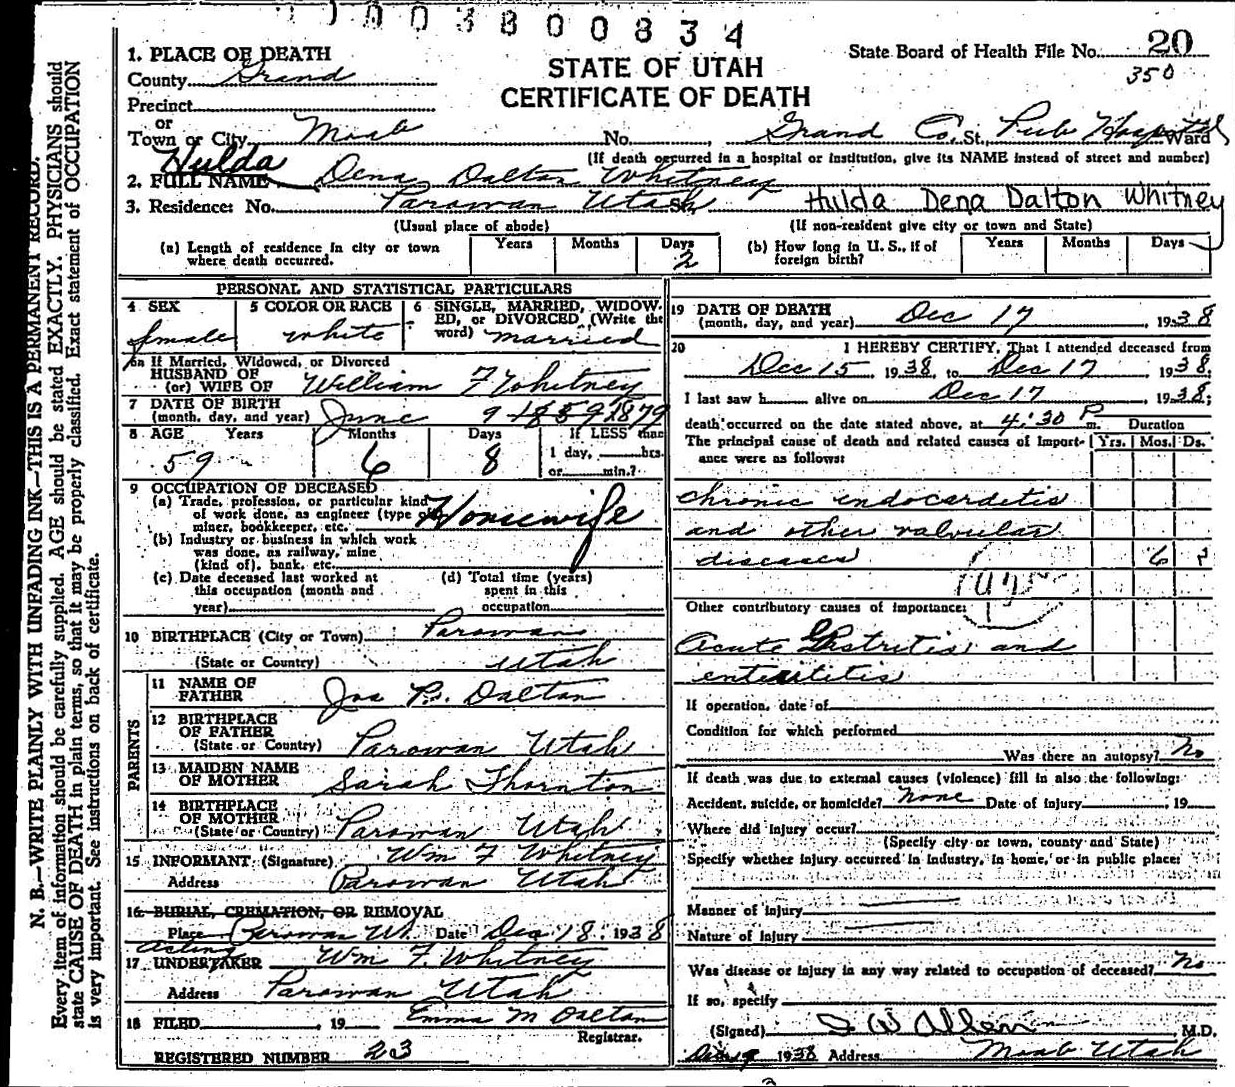 003800834
State Board of Health File No. 20
350
1. PLACE OF DEATH
County Grand
STATE OF UTAH
CERTIFICATE OF DEATH
Precinct
or
Town or City Moab No. Grand Co. St. Pub Hospital Ward
(If death occurred in a hospital or institution, give its NAME instead of street and number)
Hulda
2. FULL NAME Dena Dalton Whitney
3. Residence: No. Parowan Utah St. Hulda Dena Dalton Whitney
(Usual place of abode) (If non-resident give city or town and State)
(a) Length of residence in city or town where death occurred. Years Months Days 2
(b) How long in U. S., if of foreign birth? Years Months Days
PERSONAL AND STATISTICAL PARTICULARS
4 SEX female
5 COLOR OR RACE white
6 SINGLE, MARRIED, WIDOWED, OR DIVORCED (Write the word) married
6a If Married, Widowed, or Divorced
HUSBAND OF
(or) WIFE OF William F Whitney
7 DATE OF BIRTH
(month, day, and year) June 9 1859 1879
8 AGE Years Months Days If LESS than
59 6 8 1 day, hrs.
or min.?
9 OCCUPATION OF DECEASED
(a) Trade, profession, or particular kind
of work done, as engineer (type of
miner, bookkeeper, etc. Housewife
(b) Industry or business in which work
was done, as railway, mine
(kind of), bank, etc.
(c) Date deceased last worked at
this occupation (month and
year)
(d) Total time (years)
spent in this
occupation
10 BIRTHPLACE (City or Town) Parowan
(State or Country) Utah
PARENTS
11 NAME OF
FATHER Jos P. Dalton
12 BIRTHPLACE
OF FATHER
(State or Country) Parowan Utah
13 MAIDEN NAME
OF MOTHER Sarah Thornton
14 BIRTHPLACE
OF MOTHER
(State or Country) Parowan Utah
15 INFORMANT (Signature) Wm F Whitney
Address Parowan Utah
16 BURIAL, CREMATION, OR REMOVAL
Place Parowan Ut. Date Dec 18, 1938
Acting
17 UNDERTAKER Wm F. Whitney
Address Parowan Utah
18 FILED , 19 Emma M Dalton
Registrar.
REGISTERED NUMBER 23
19 DATE OF DEATH
(month, day, and year) Dec 17, 1938
20 I HEREBY CERTIFY, That I attended deceased from
Dec 15 1938, to Dec 17 1938,
I last saw h alive on Dec 17, 1938;
death occurred on the date stated above, at 4:30 P m. Duration
The principal cause of death and related causes of importance were as follows: Yrs. Mos. Ds.
chronic endocarditis
and other valvular
diseases 6
Other contributory causes of importance:
Acute Gastritis and
enteritis
If operation, date of
Condition for which performed
Was there an autopsy? No
If death was due to external causes (violence) fill in also the following:
Accident, suicide, or homicide? none Date of injury , 19
Where did injury occur?
(Specify city or town, county and State)
Specify whether injury occurred in industry, in home, or in public place:
Manner of injury
Nature of injury
Was disease or injury in any way related to occupation of deceased? No
If so, specify
(Signed) I W Allen M.D.
1938 Address Moab Utah
N. B.—WRITE PLAINLY WITH UNFADING INK—THIS IS A PERMANENT RECORD.
Every item of information should be carefully supplied. AGE should be stated EXACTLY. PHYSICIANS should
state CAUSE OF DEATH in plain terms, so that it may be properly classified. Exact statement of OCCUPATION
is very important. See instructions on back of certificate.